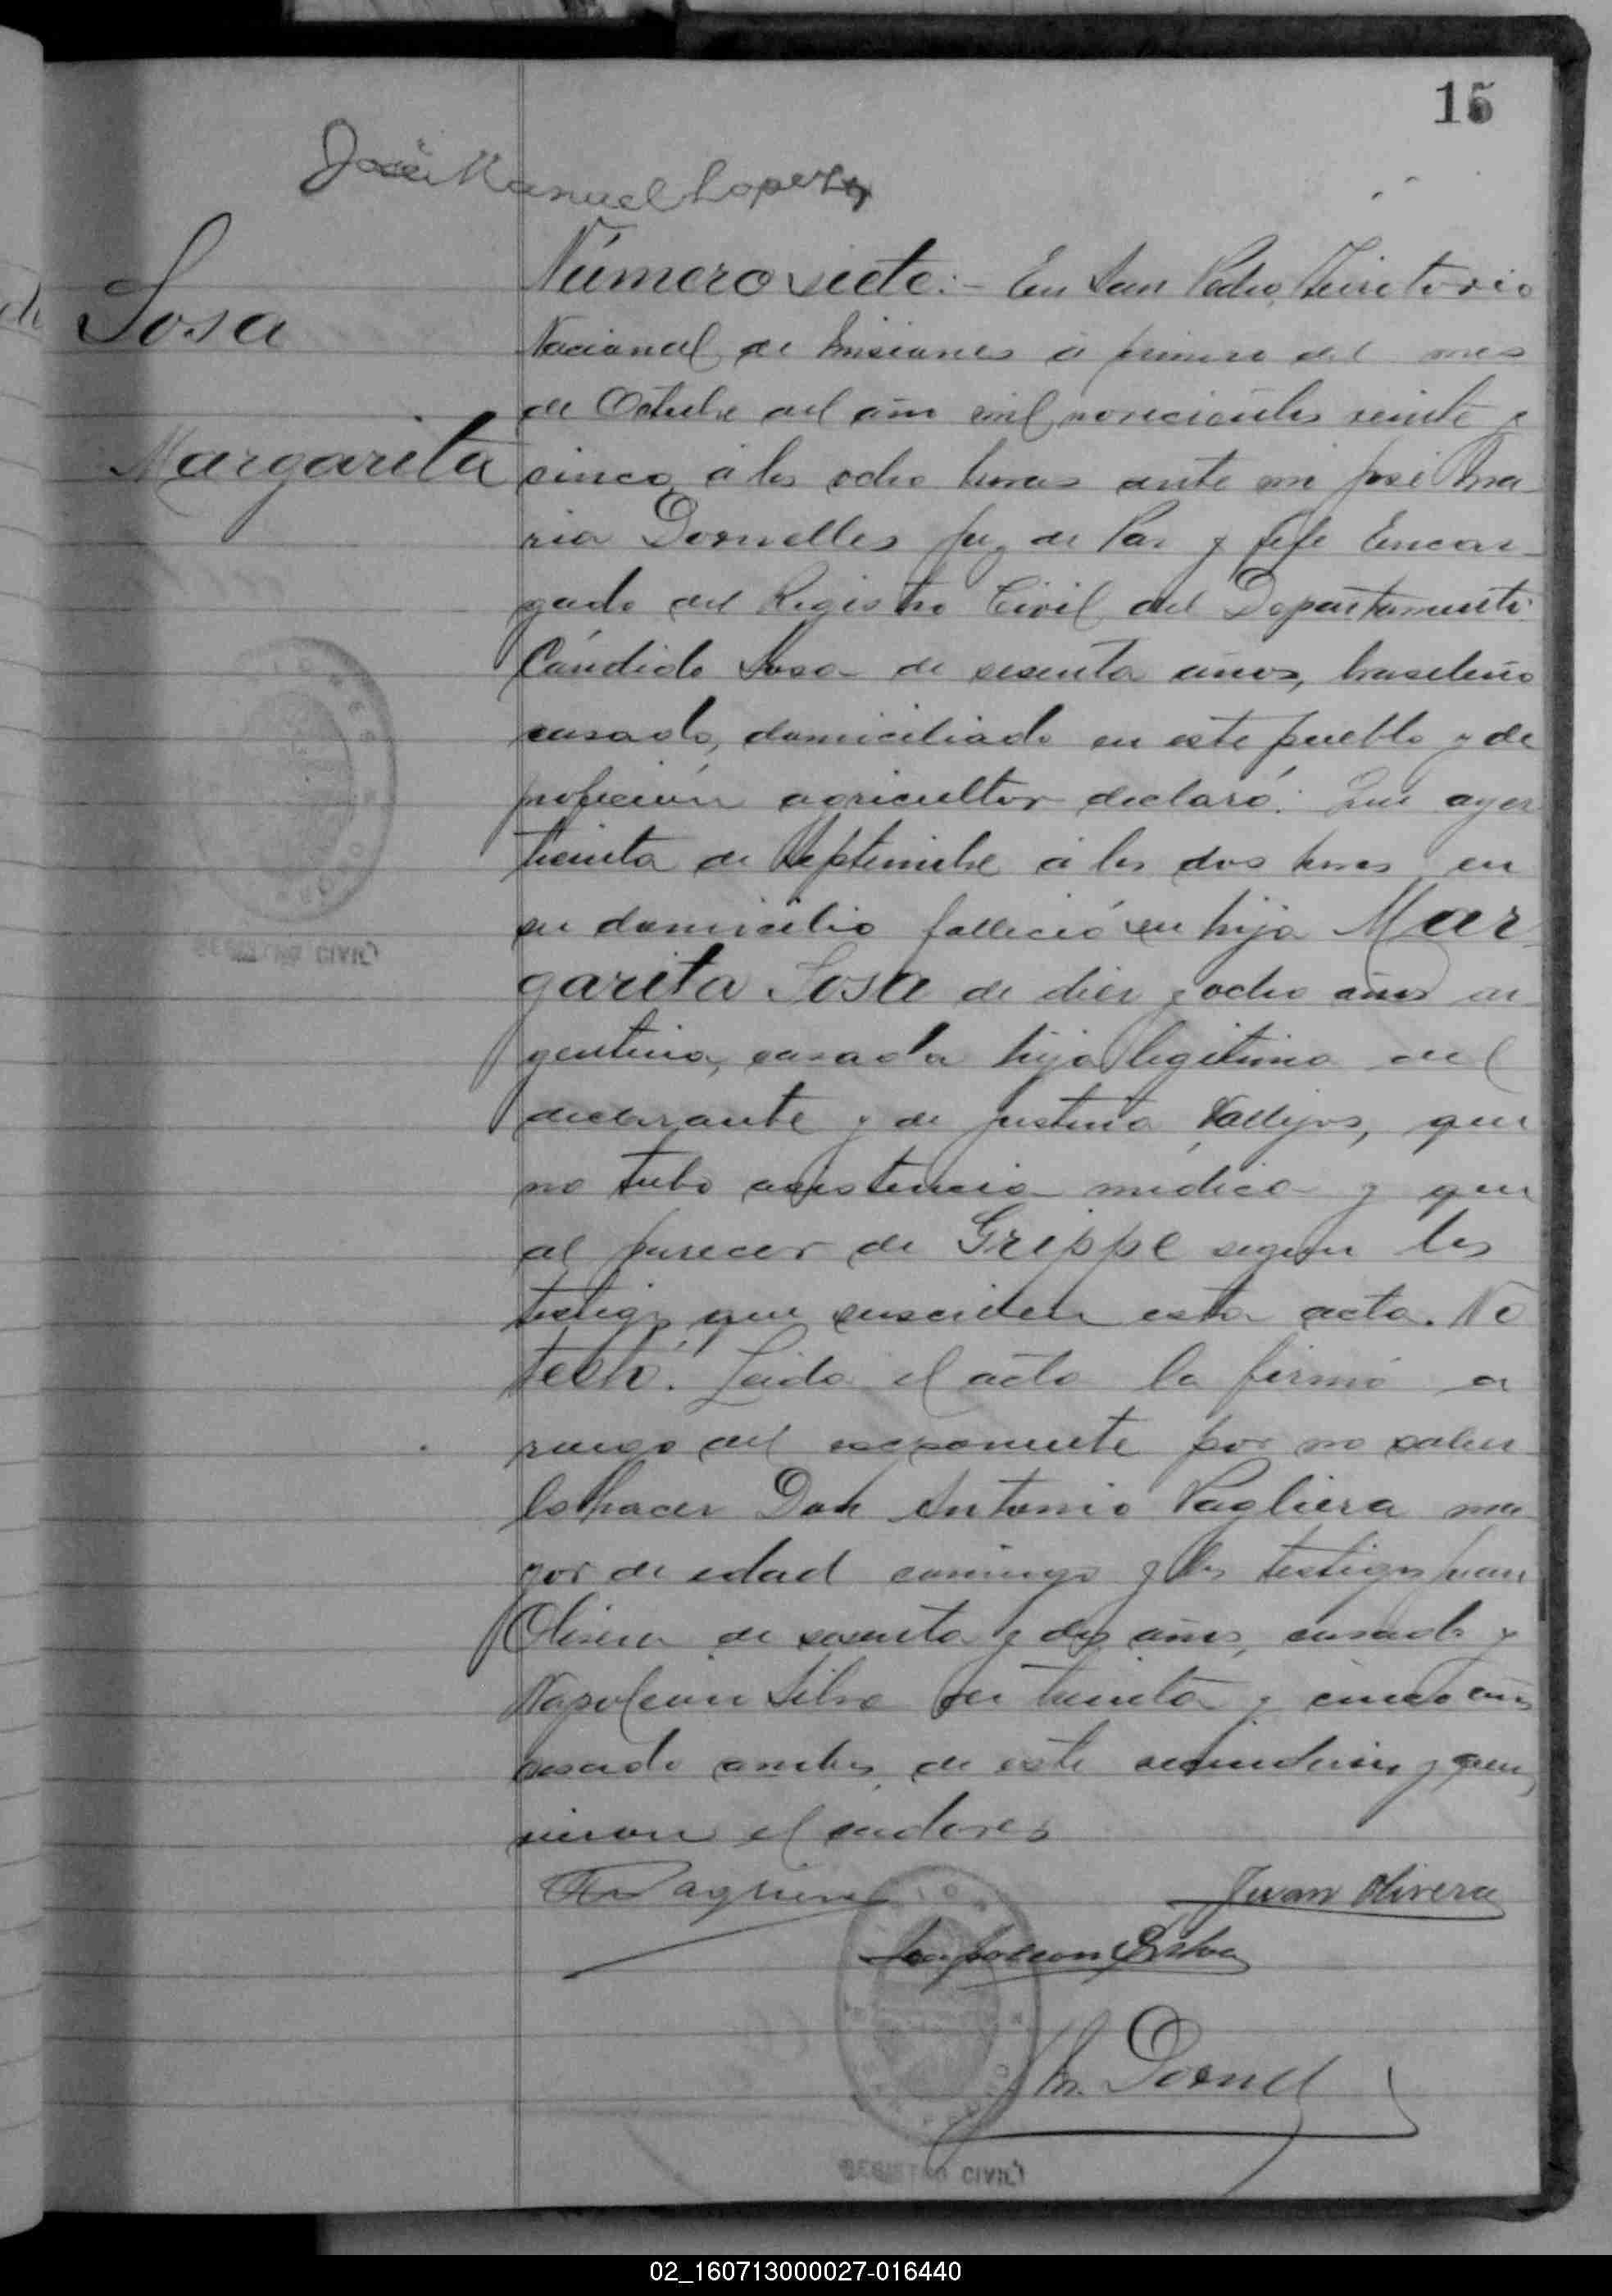 15
José Manuel Lopez
Sosa
Margarita
Número siete:- En San Pedro, Territorio
Nacional de Misiones á primero del mes
de Octubre del año mil novecientos veinte y
cinco, á las ocho horas ante mi José Ma-
ria Dornelles Juez de Paz y Jefe Encar-
gado del Registro Civil del Departamento:
Cándido Sosa de sesenta años, brasileño
casado, domiciliado en este pueblo y de
profeción agricultor declaró: Que ayer
treinta de Septiembre á las dos horas en
su domicilio falleció su hija Mar-
garita Sosa de diez y ocho años ar-
gentina, casada hija legitima del
declarante y de Justina Vallejos, que
no tubo asistencia médica y que
al parecer de Grippe segun los
testigos que suscriben esta acta. No
testó. Leida el acta la firmó a
ruego del exponente por no saber-
lo hacer Don Antonio Pagliera ma-
yor de edad conmigo y los testigos Juan
Olivera de sesenta y dos años, casado y
Napoleón Silva de treinta y cinco años
casado ambos de este vecindario y quienes
vieron el cadaver
Juan Olivera
Napoleon Silva
REGISTRO CIVIL
REGISTRO CIVIL
02_160713000027-016440